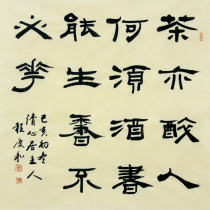 茶亦醉人
何須酒書
能生香不
必花
己亥初冬
清心居主人